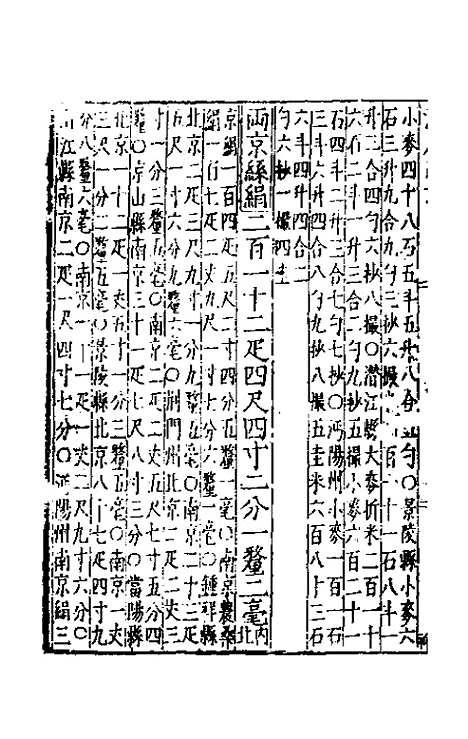 小麥四十八石五斗五升八合 勺〇景陵縣小麥六
石三升九合九勺三抄六撮 百一十一石八斗一
升三合四勺六抄八撮〇潛江縣大麥折米二百一十
六石二斗一升三合二勺九抄五撮小麥六百二十一
石四斗二升三合七勺七抄〇沔陽州小麥一百一石
三斗六升四合八勺九抄八撮五圭米六百八十三石
六斗四升四合二
勺六抄一撮四圭
兩京絲絹二百一十二疋四尺四寸二分一釐二毫內北
京絹一百四疋二寸四分五釐一毫〇南京農桑
絹一百七疋二丈九尺一寸七分六釐一毫〇鍾祥縣
北京二疋三尺九寸一分九釐五毫〇南京二十三疋
五尺一寸六分九釐六毫〇荊門州北京二疋二丈三
寸一分三釐五毫〇南京二疋二丈五尺七寸五分四
釐〇京山縣南京三十一疋七尺八寸三分〇當陽縣
北京一十二疋一丈五寸一分三釐五毫〇南京一丈
三尺一分二釐五毫〇景陵縣北京八十七疋四寸九
分八釐六毫〇南京一十一疋一丈二尺九寸六分〇
江縣南京二疋一尺四寸七分〇沔陽州南京絹三